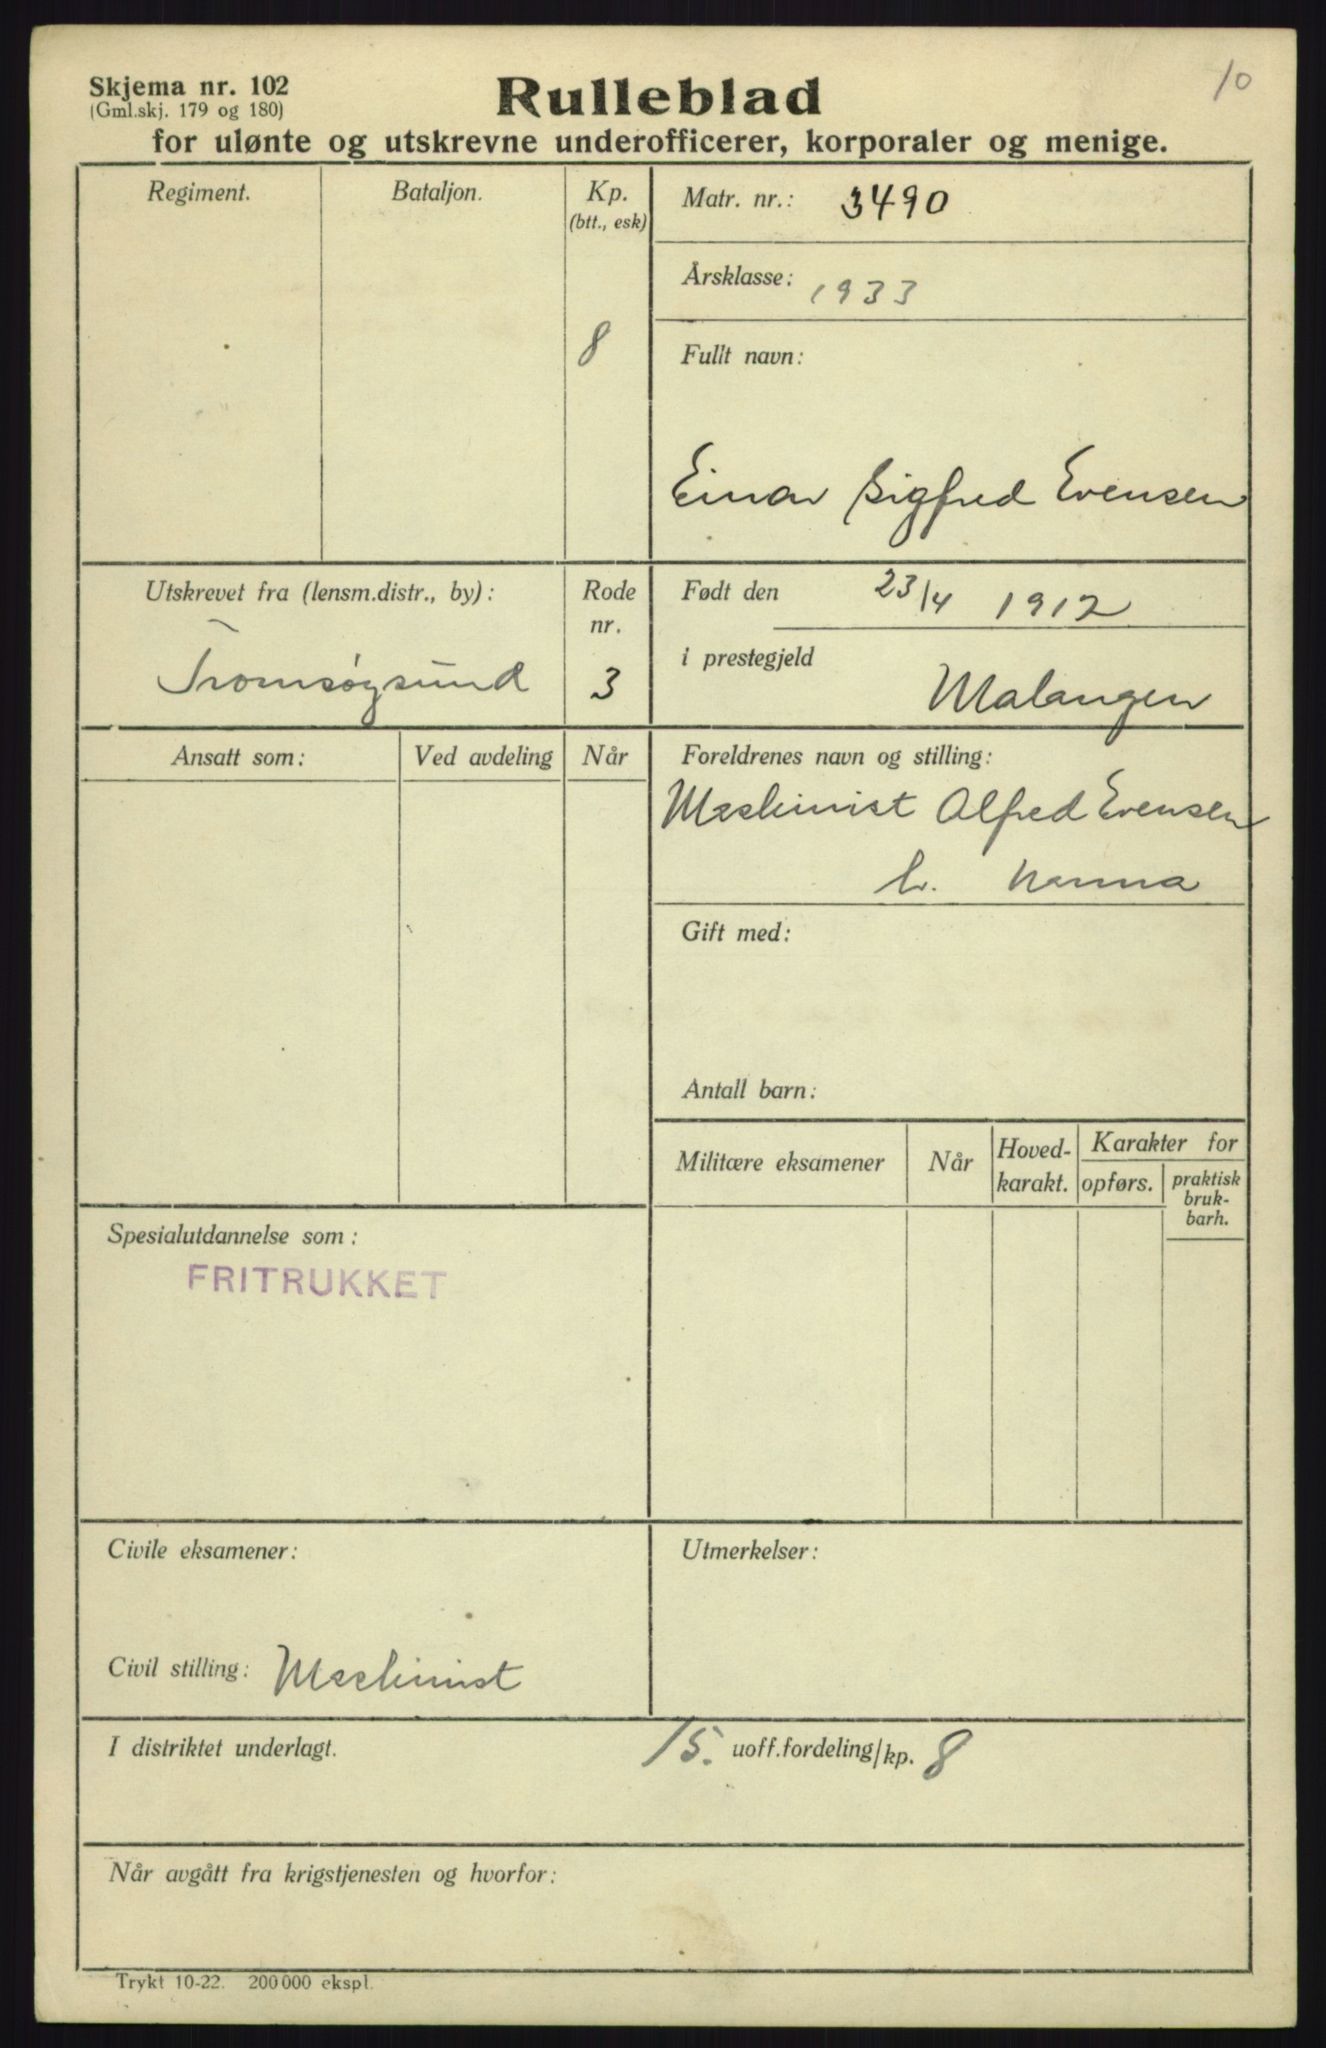 10
Skjema nr. 102
(Gml.skj. 179 og 180)
Rulleblad
for ulønte og utskrevne underofficerer, korporaler og menige.
Regiment.
Bataljon.
Kp.
(btt., esk)
8
Matr. nr.: 3490
Årsklasse: 1933
Fullt navn:
Einar Sigfred Evensen
Utskrevet fra (lensm.distr., by):
Tromsøysund
Rode
nr.
3
Født den 23/4 1912
i prestegjeld
Malangen
Ansatt som:
Ved avdeling
Når
Foreldrenes navn og stilling:
Maskinist Alfred Evensen
h. Hanna
Gift med:
Antall barn:
Militære eksamener
Når
Hoved-
karakt.
Karakter for
opførs.
praktisk
bruk-
barh.
Spesialutdannelse som:
FRITRUKKET
Civile eksamener:
Utmerkelser:
Civil stilling: Maskinist
I distriktet underlagt. 15. uoff.fordeling/kp. 8
Når avgått fra krigstjenesten og hvorfor:
Trykt 10-22. 200000 ekspl.